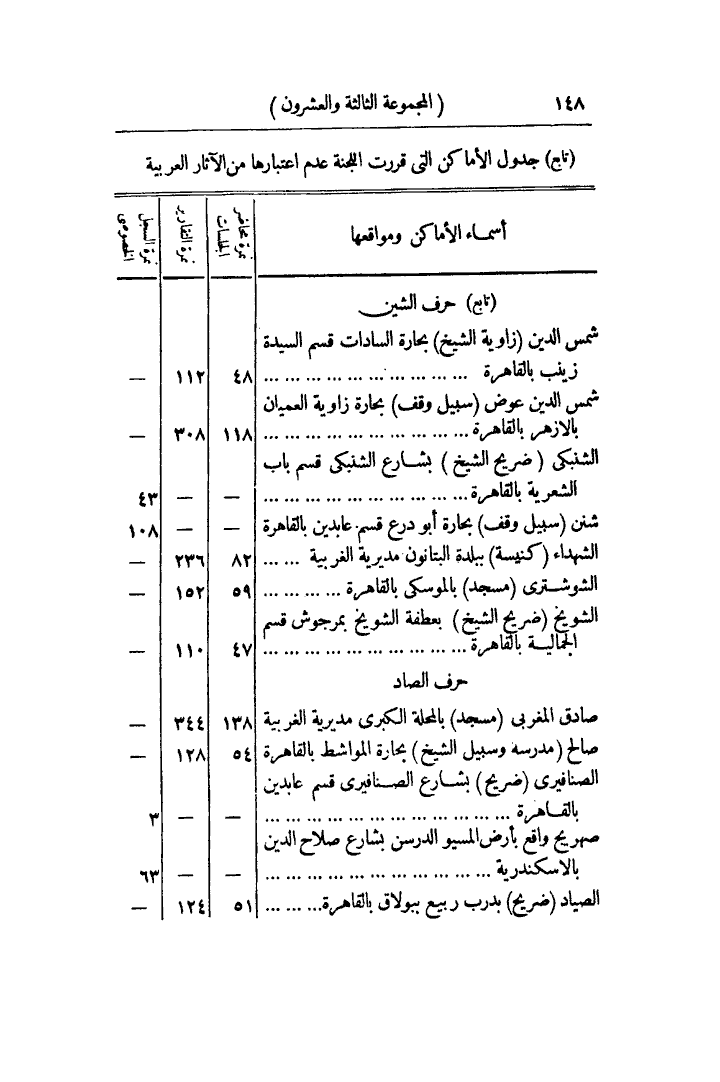 ١٤٨ ( المجموعة الثالثة والعشرون )
(تابع) جدول الأماكن التى قررت اللجنة عدم اعتبارها من الآثار العربية
أسماء الأماكن ومواقعها نمرة محاضر الجلسات نمرة التقارير نمرة السجل الخصوصى
(تابع) حرف الشين
شمس الدين (زاوية الشيخ) بحارة السادات قسم السيدة
زينب بالقاهرة ... ... ... ... ... ... ... ... ... ... ٤٨ ١١٢ —
شمس الدين عوض (سبيل وقف) بحارة زاوية العميان
بالازهر بالقاهرة ... ... ... ... ... ... ... ... ... ... ١١٨ ٣٠٨ —
الشنبكى ( ضريح الشيخ ) بشارع الشنبكى قسم باب
الشعرية بالقاهرة ... ... ... ... ... ... ... ... ... ... — — ٤٣
شنن (سبيل وقف) بحارة أبو درع قسم عابدين بالقاهرة — — ١٠٨
الشهداء (كنيسة) ببلدة البتانون مديرية الغربية ... ... ٨٢ ٢٣٦ —
الشوشترى (مسجد) بالموسكى بالقاهرة ... ... ... ... ٥٩ ١٥٢ —
الشويخ (ضريح الشيخ) بعطفة الشويخ بمرجوش قسم
الجمالية بالقاهرة ... ... ... ... ... ... ... ... ... ... ٤٧ ١١٠ —
حرف الصاد
صادق المغربى (مسجد) بالمحلة الكبرى مديرية الغربية ١٣٨ ٣٤٤ —
صالح (مدرسه وسبيل الشيخ) بحارة المواشط بالقاهرة ٥٤ ١٢٨ —
الصنافيرى (ضريح) بشارع الصنافيرى قسم عابدين
بالقاهرة ... ... ... ... ... ... ... ... ... ... ... ... — — ٣
صهريج واقع بأرض المسيو الدرسن بشارع صلاح الدين
بالاسكندرية ... ... ... ... ... ... ... ... ... ... ... — — ٦٣
الصياد (ضريح) بدرب ربيع ببولاق بالقاهرة ... ... ... ٥١ ١٢٤ —